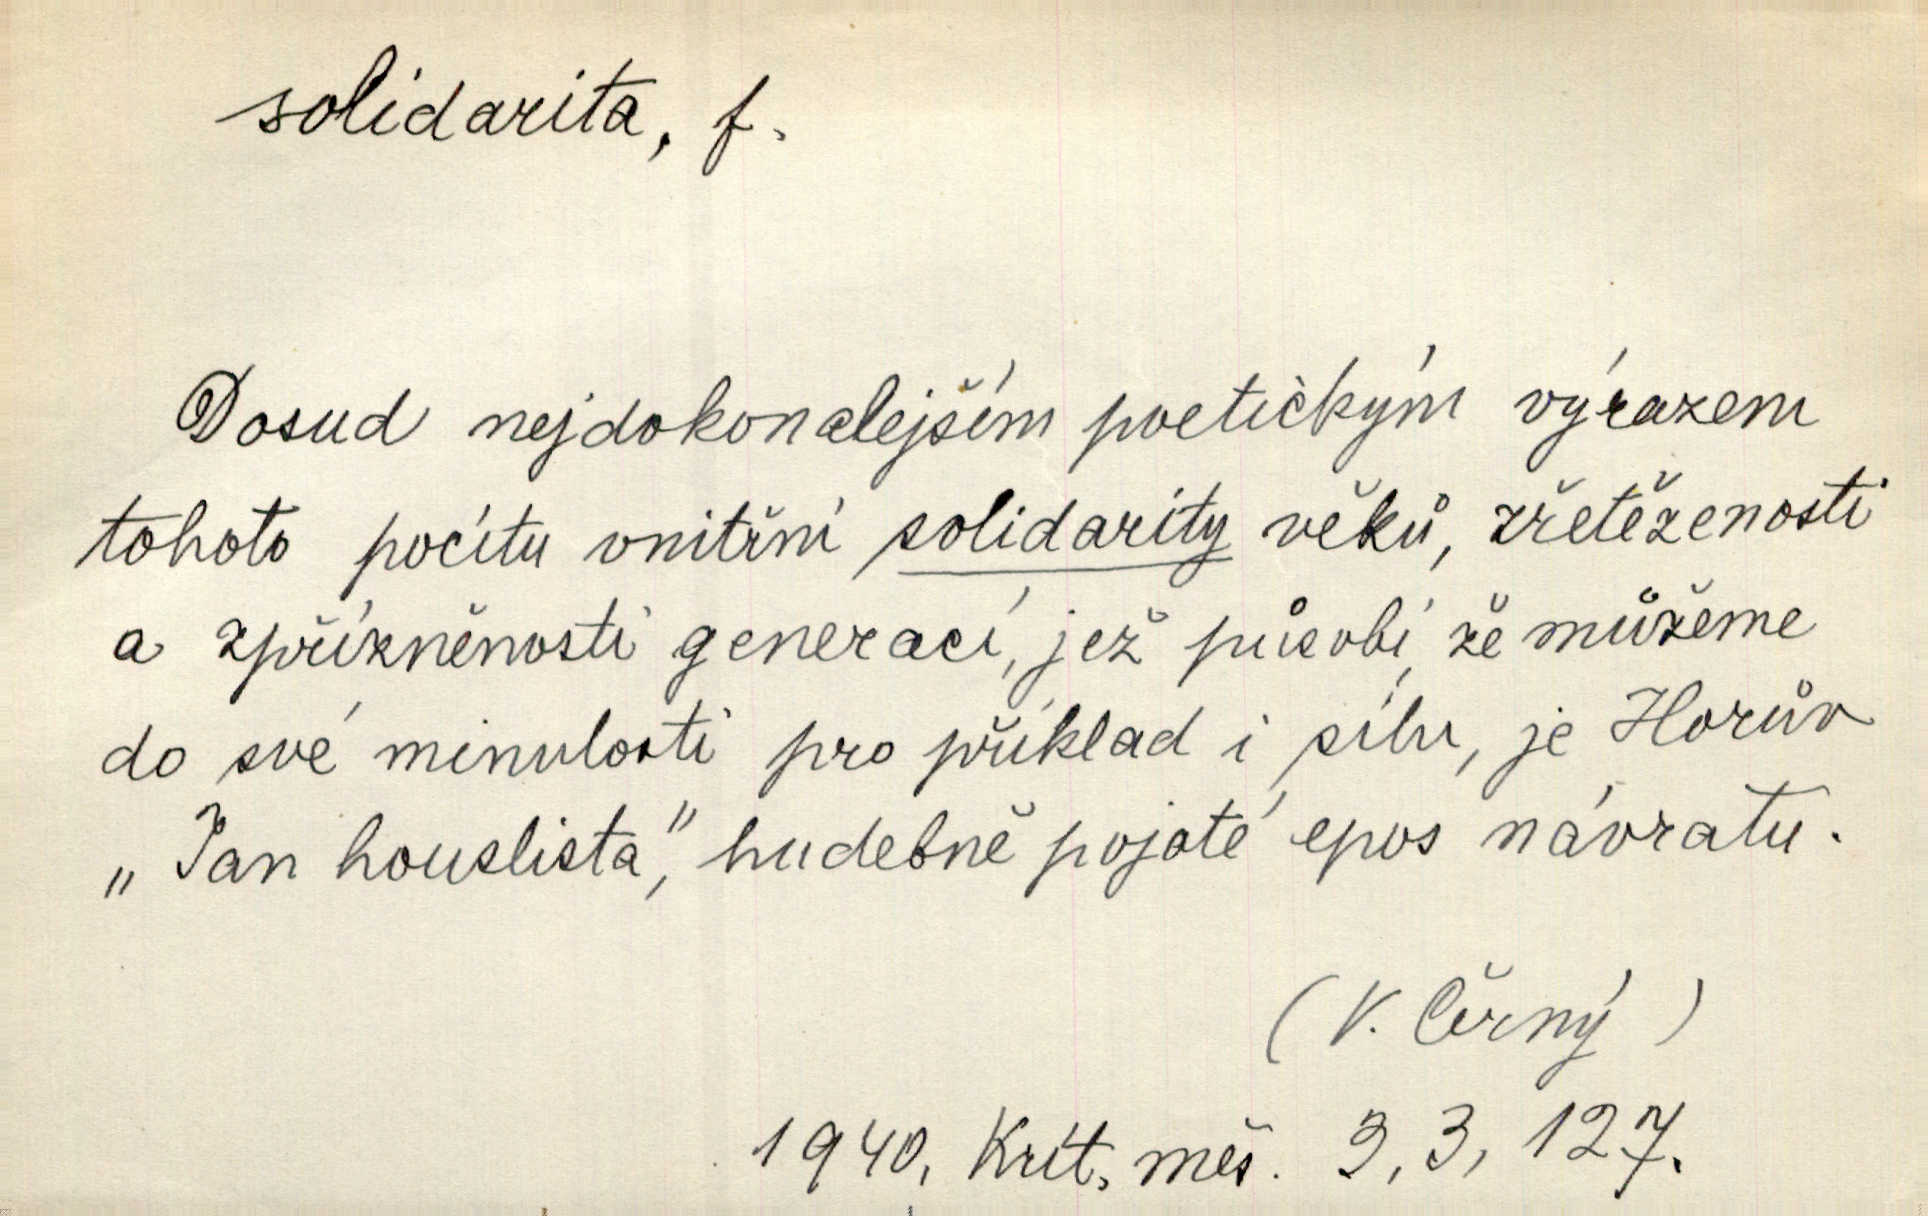 solidarita, f.
Dosud nejdokonalejším poetickým výrazem
tohoto pocitu vnitřní solidarity věků, zřetěženosti
a zpřízněnosti generací, jež působí, že můžeme
do své minulosti pro příklad i sílu, je Horův
„Jan houslista,” hudebně pojaté epos návratu.
(V. Černý)
1940, Krit. měs. 3, 3, 127.